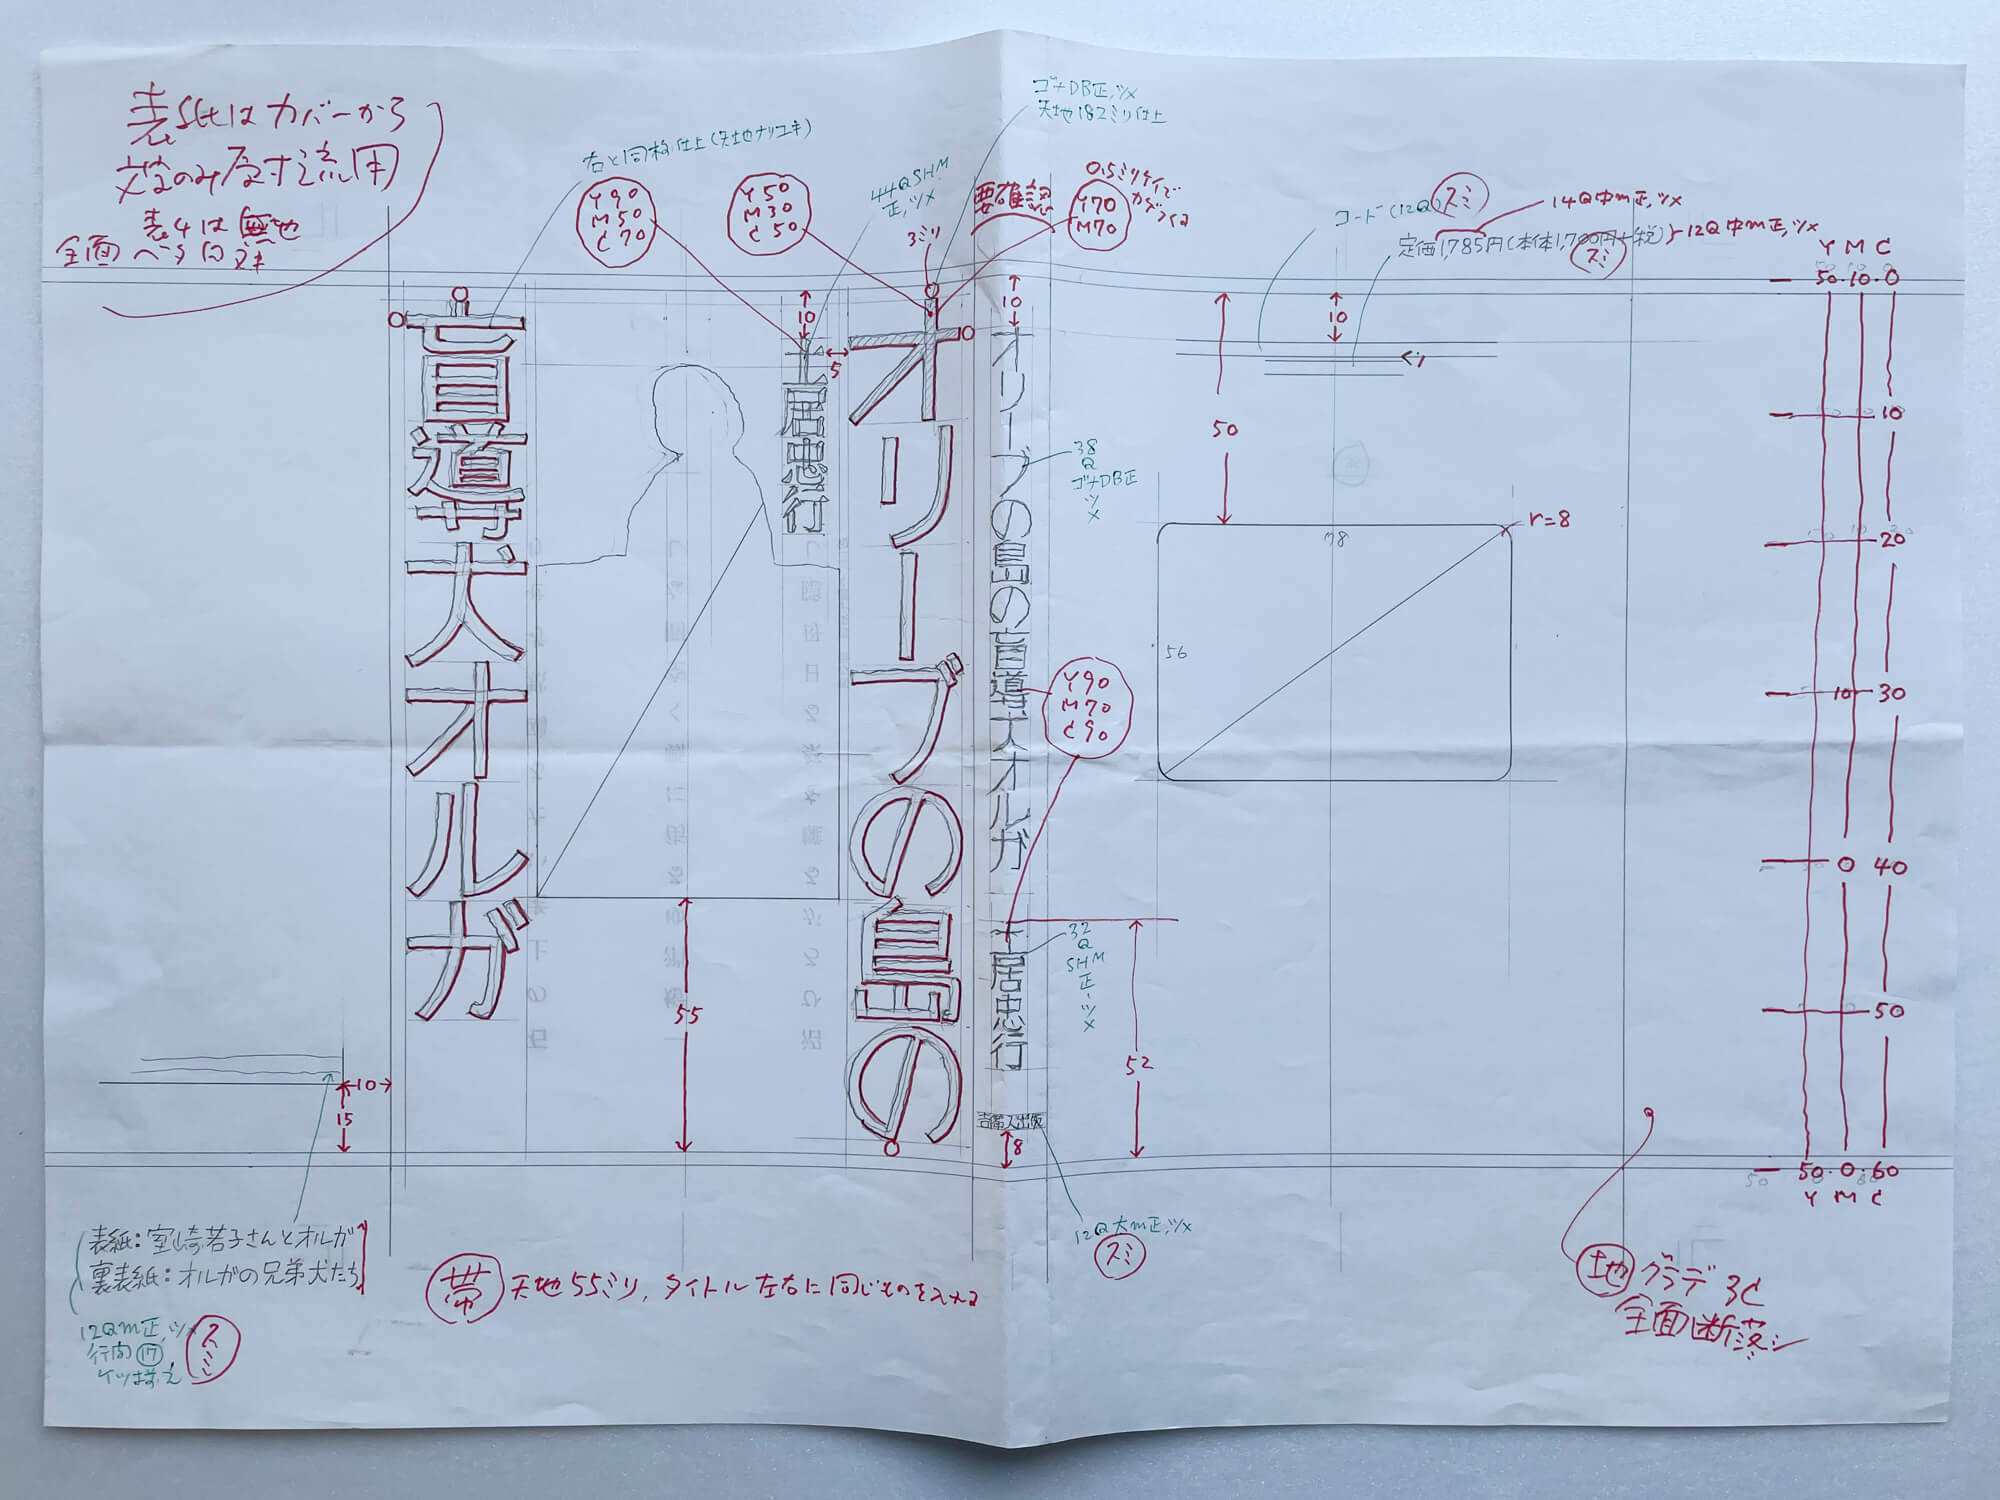 表紙はカバーから
文字のみ反対流用
表4は無地
全面ベタ白ヌキ
右と同格仕上(天地ナリユキ)
Y90
M50
C70
Y50
M30
C50
44Q SHM
正,ツメ
3ミリ
ゴナDB正,ツメ
天地182ミリ仕上
要確認
0.5ミリケイで
カゲつける
Y70
M70
コード(12Q)
スミ
14Q中M正,ツメ
定価1,785円(本体1,700円+税)
12Q中M正,ツメ
スミ
Y M C
50・10・0
10
20
10 30
0 40
50
50・0・60
Y M C
10
5
10
10
50
オリーブの島の
盲導犬オルガ
土居忠行
オリーブの島の盲導犬オルガ
38
Q
ゴナDB正
ツ
メ
Y90
M70
C90
土居忠行
32
Q
SHM
正
ツ
メ
吉備人出版
8
12Q大M正,ツメ
スミ
r=8
78
56
55
52
10
15
表紙:室崎若子さんとオルガ
裏表紙:オルガの兄弟犬たち
12QM正,ツメ
行間17
ケツ揃え
スミ
帯 天地55ミリ,タイトル左右に同じものを入れる
地 グラデ3C
全面断落シ